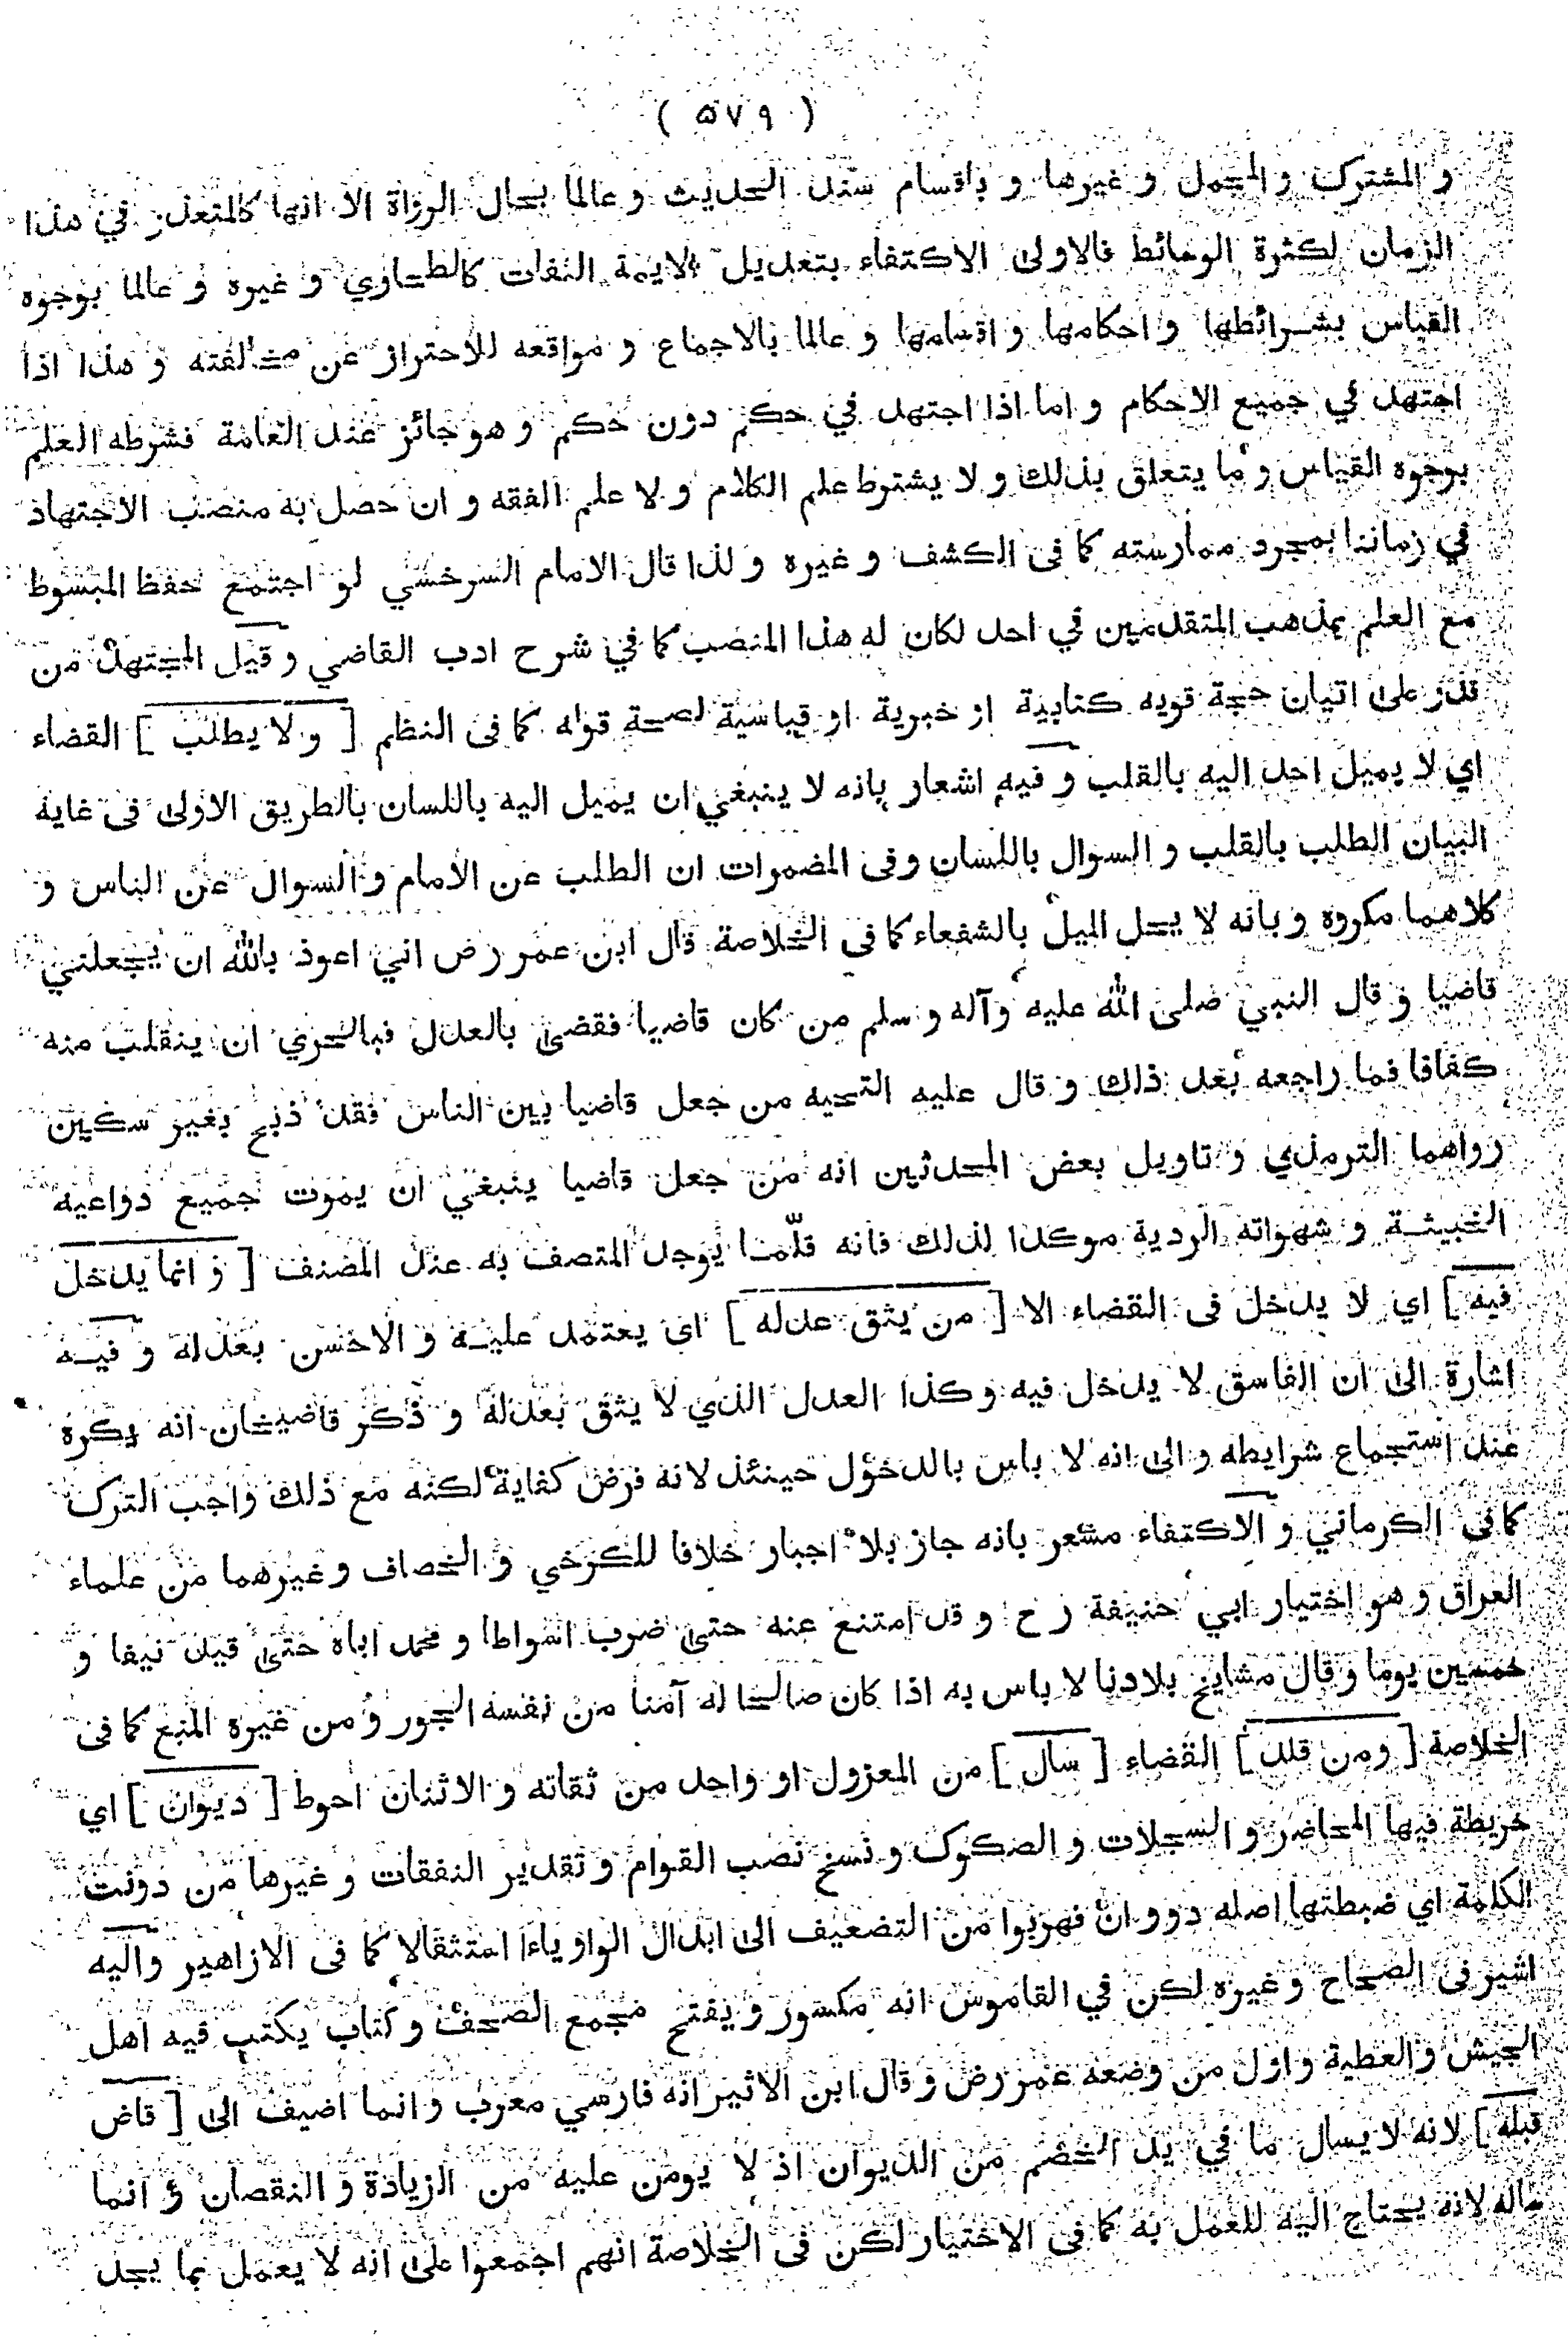 ( ٥٧٩ )
و المشترك و المجمل و غيرها و باقسام سند الحديث و عالما بحال الرواة الا انها كالمتعذر في هذا
الزمان لكثرة الوسائط فالاولى الاكتفاء بتعديل الايمة الثقات كالطحاوي و غيره و عالما بوجوه
القياس بشرائطها و احكامها و اقسامها و عالما بالاجماع و مواقعه للاحتراز عن مخالفته و هذا اذا
اجتهد في جميع الاحكام و اما اذا اجتهد في حكم دون حكم و هو جائز عند العامة فشرطه العلم
بوجوه القياس و ما يتعلق بذلك و لا يشترط علم الكلام و لا علم الفقه و ان حصل به منصب الاجتهاد
في زماننا بمجرد ممارسته كما فى الكشف و غيره و لذا قال الامام السرخسي لو اجتمع حفظ المبسوط
مع العلم بمذهب المتقدمين في احد لكان له هذا المنصب كما في شرح ادب القاضي و قيل المجتهد من
قدر على اتيان حجة قويه كتابية او خبرية او قياسية لصحة قوله كما فى النظم [ و لا يطلب ] القضاء
اي لا يميل احد اليه بالقلب و فيه اشعار بانه لا ينبغي ان يميل اليه باللسان بالطريق الاولى فى غاية
البيان الطلب بالقلب و السوال باللسان وفى المضمرات ان الطلب عن الامام و السوال عن الناس و
كلاهما مكروه و بانه لا يحل الميل بالشفعاء كما فى الخلاصة قال ابن عمر رض اني اعوذ بالله ان يجعلني
قاضيا و قال النبي صلى الله عليه وآله و سلم من كان قاضيا فقضى بالعدل فبالحري ان ينقلب منه
كفافا فما راجعه بعد ذلك و قال عليه التحيه من جعل قاضيا بين الناس فقد ذبح بغير سكين
رواهما الترمذي و تاويل بعض المحدثين انه من جعل قاضيا ينبغي ان يموت جميع دواعيه
الخبيثة و شهواته الردية موكدا لذلك فانه قلّما يوجد المتصف به عند المصنف [ و انما يدخل
فيه ] اي لا يدخل فى القضاء الا [ من يثق عدله ] اى يعتمد عليه و الاحسن بعدله و فيه
اشارة الى ان الفاسق لا يدخل فيه و كذا العدل الذي لا يثق بعدله و ذكر قاضيخان انه يكره
عند استجماع شرايطه و الى انه لا باس بالدخول حينئذ لانه فرض كفاية لكنه مع ذلك واجب الترك
كما فى الكرماني و الاكتفاء مشعر بانه جاز بلا اجبار خلافا للكرخي و الخصاف و غيرهما من علماء
العراق و هو اختيار ابي حنيفة رح و قد امتنع عنه حتى ضرب اسواطا و محمد اباه حتى قيد نيفا و
خمسين يوما و قال مشايخ بلادنا لا باس به اذا كان صالحا له آمنا من نفسه الجور و من غيره المنع كما فى
الخلاصة [ ومن قلد ] القضاء [ سأل ] من المعزول او واحد من ثقاته و الاثنان احوط [ ديوان ] اي
خريطة فيها المحاضر و السجلات و الصكوك و نسخ نصب القوام و تقدير النفقات و غيرها من دونت
الكلمة اي ضبطتها اصله دووان فهربوا من التضعيف الى ابدال الواو ياءا استثقالا كما فى الازاهير واليه
اشير فى الصحاح و غيره لكن في القاموس انه مكسور و يفتح مجمع الصحف و كتاب يكتب فيه اهل
الجيش و العطية و اول من وضعه عمر رض و قال ابن الاثير انه فارسي معرب و انما اضيف الى [ قاض
قبله ] لانه لا يسال ما في يد الخصم من الديوان اذ لا يومن عليه من الزيادة و النقصان و انما
ساله لانه يحتاج اليه للعمل به كما فى الاختيار لكن فى الخلاصة انهم اجمعوا على انه لا يعمل بما يجد